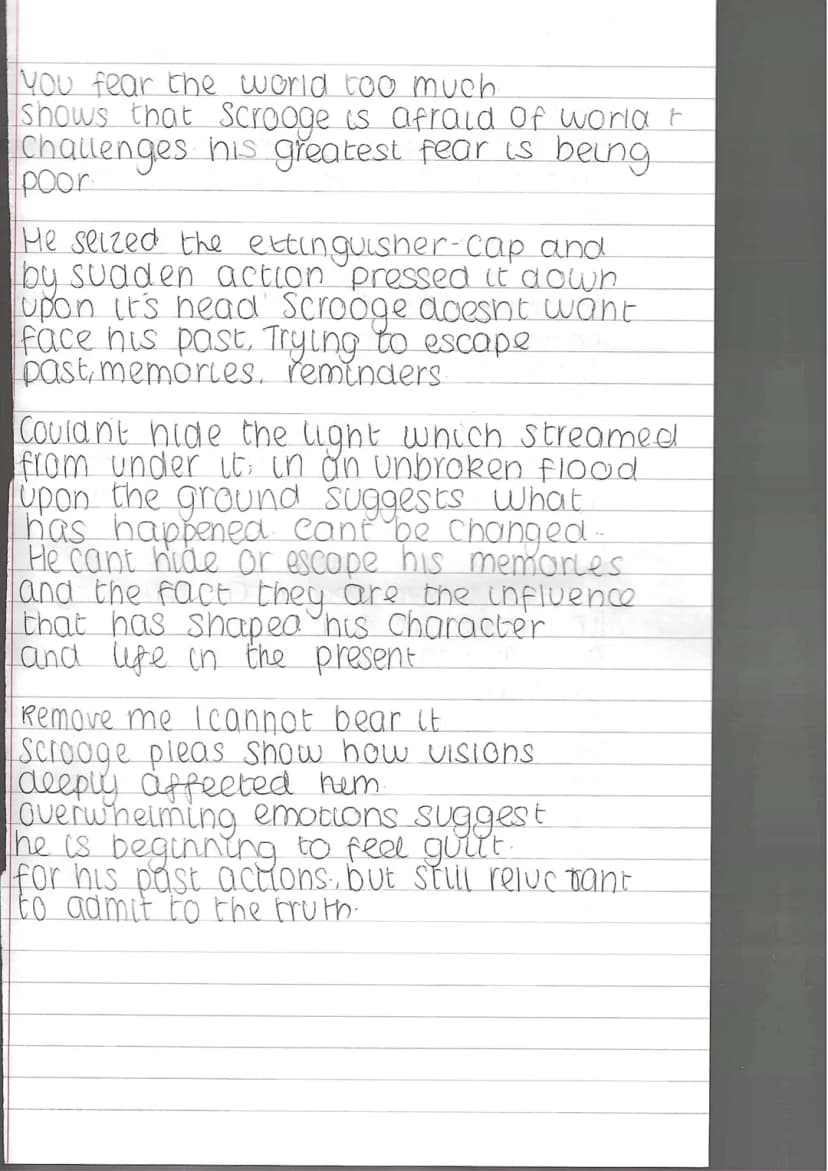 You fear the world too much
Shows that Scrooge is afraid of world +
Challenges his greatest fear is being
poor.
He seized the extinguisher-cap and
by sudden action pressed it down
upon it's head Scrooge doesnt want
face his past. Trying to escape
past, memories. reminders.
Couldn't hide the light which streamed
from under it, in an unbroken flood
upon the ground suggests what
has happened. cant be changed.
He cant hide or escape his memories
and the fact they are the influence
that has shaped his character
and life in the present
Remove me I cannot bear it
Scrooge pleas show how visions
deeply affected hem.
overwhelming emotions suggest
he is beginning to feel guilt.
for his past actions., but still reluctant
to admit to the truth.